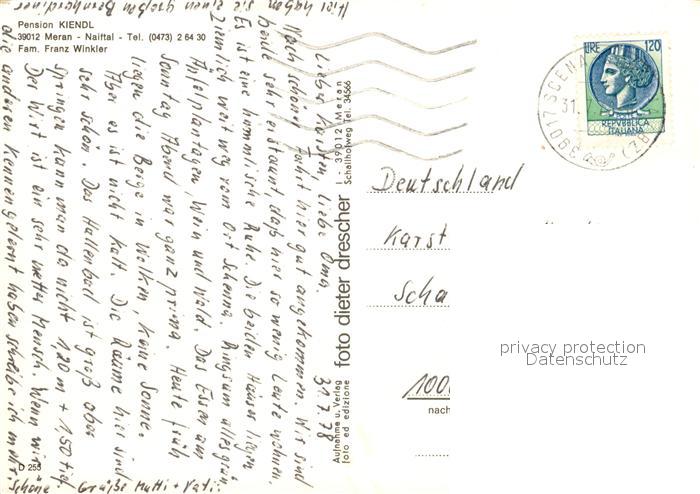 Pension KIENDL
39012 Meran - Naiftal - Tel. (0473) 2 64 30
Fam. Franz Winkler
31.7.78
Liebe Karsten, liebe Oma,
Nach schöner Fahrt hier gut angekommen. Wir sind
beide sehr erstaunt daß hier so wenig Leute wohnen.
Es ist eine himmlische Ruhe. Die beiden Häuser liegen
ziemlich weit weg vom Ort Schenna. Ringsum alles grün
Apfelplantagen, Wein und Wald. Das Essen am
Sonntag Abend war ganz prima. Heute früh
liegen die Berge in Wolken, keine Sonne.
Aber es ist nicht kalt. Die Räume hier sind
sehr schön. Das Hallenbad ist groß aber
springen kann man da nicht 1,20 m + 1,50 tief.
Der Wirt ist ein sehr netter Mensch. Wenn wir
die anderen kennengelernt haben schreibe ich mehr.
Hier haben sie einen großen Bernhardiner
Schöne Grüße Mutti + Vati.
D 255
Aufnahme u. Verlag
foto ed edizione
foto dieter drescher
I - 39012 Meran
Schallhofweg Tel. 34566
LIRE 120
REPVBBLICA
ITALIANA
39017 SCENA (BZ)
31.7
Deutschland
Karst
Scha
100
nach
privacy protection
Datenschutz